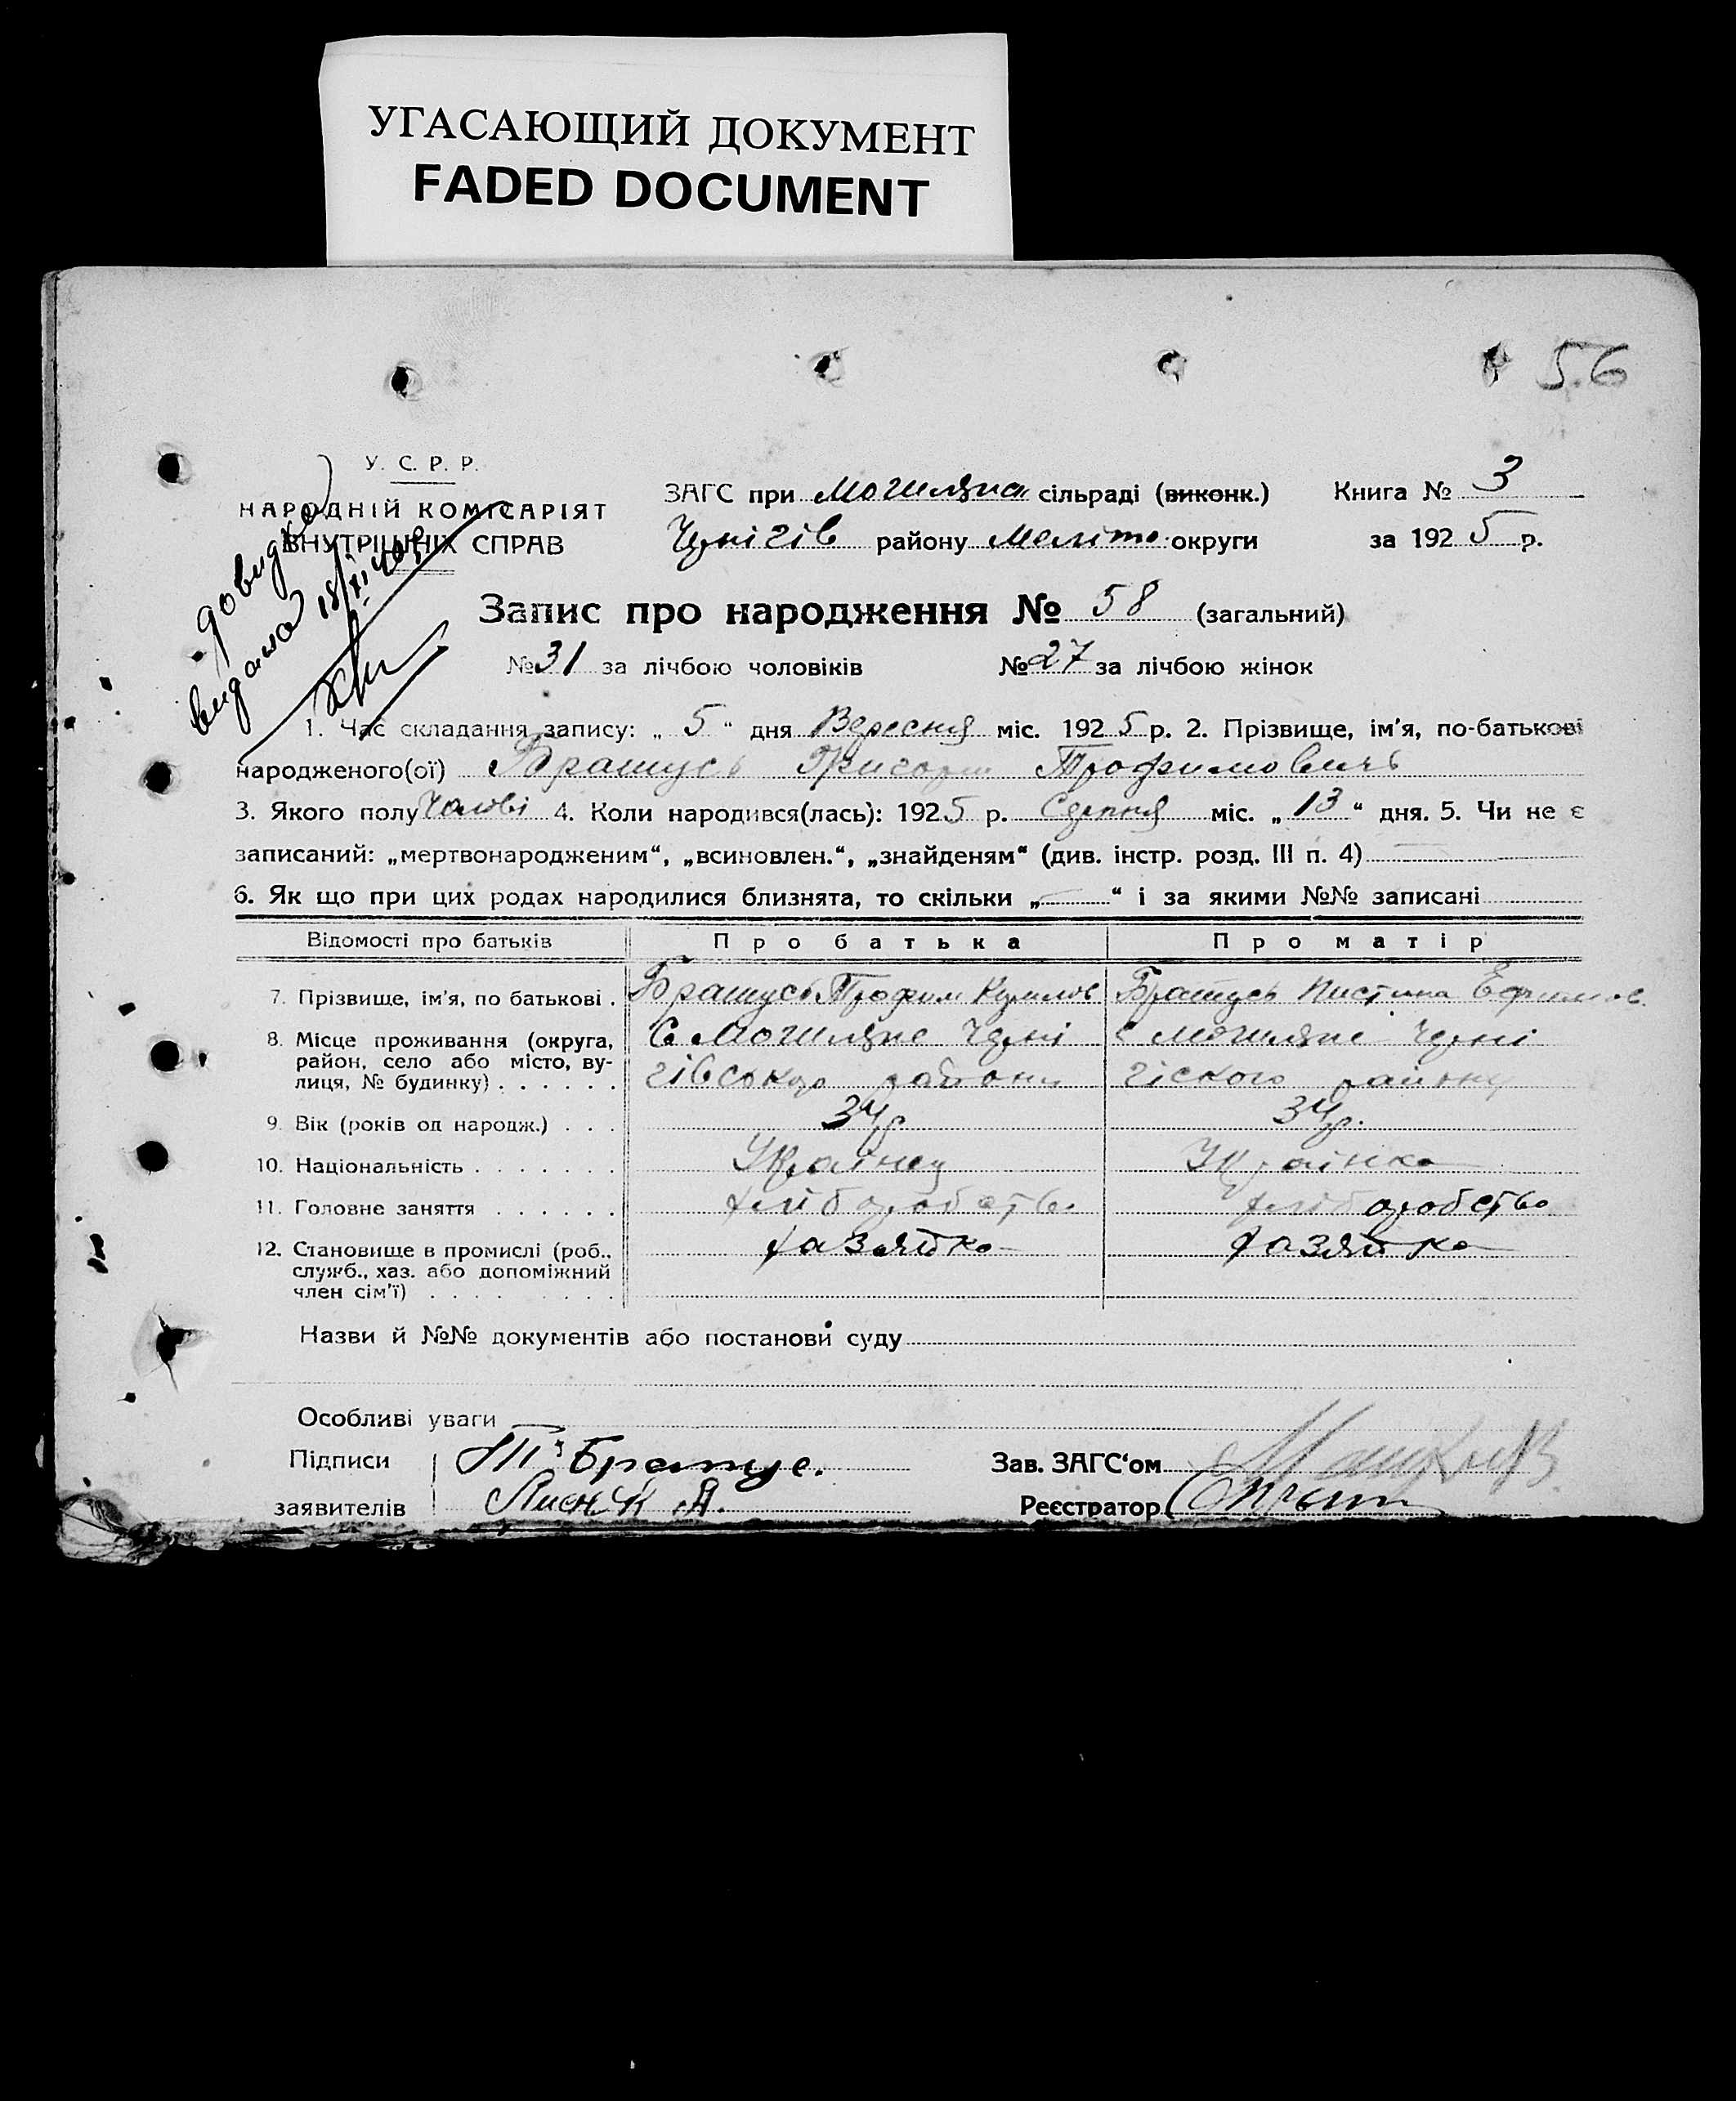 УГАСАЮЩИЙ ДОКУМЕНТ
FADED DOCUMENT
56
У. С. Р. Р.
НАРОДНІЙ КОМІСАРІЯТ
ВНУТРІШНІХ СПРАВ
довидка
видана 18/XI
ЗАГС при Могиляна сільраді (виконк.) Книга № 3
Чернігів району Меліто округи за 1925 р.
Запис про народження № 58 (загальний)
№ 31 за лічбою чоловіків № 27 за лічбою жінок
1. Час складання запису: „ 5 “ дня Вересня міс. 1925 р. 2. Прізвище, ім'я, по-батькові
народженого(ої) Братусь Григорій Трофимовичь
3. Якого полу Чолові 4. Коли народився(лась): 1925 р. Серпня міс. „ 13 “ дня. 5. Чи не є
записаний: „мертвонародженим“, „всиновлен.“, „знайденям“ (див. інстр. розд. III п. 4)
6. Як що при цих родах народилися близнята, то скільки „ “ і за якими №№ записані
Відомості про батьків Про батька Про матір
7. Прізвище, ім'я, по батькові . Братусь Трофим Братусь
8. Місце проживання (округа, район, село або місто, вулиця, № будинку) . . . . . .
С Могиляне Черні
гівського району
с Могиляне Черні
гіского району
9. Вік (років од народж.) . . . 34 р 34 р.
10. Національність . . . . . . . Українец Українка
11. Головне заняття . . . . . . хліборобство хліборобство
12. Становище в промислі (роб., служб., хаз. або допоміжний член сім'ї) . . . . . . . . .
хазяйка хазяйка
Назви й №№ документів або постанови суду
Особливі уваги
Підписи Т Братус. Зав. ЗАГС‘ом
заявителів Реєстратор